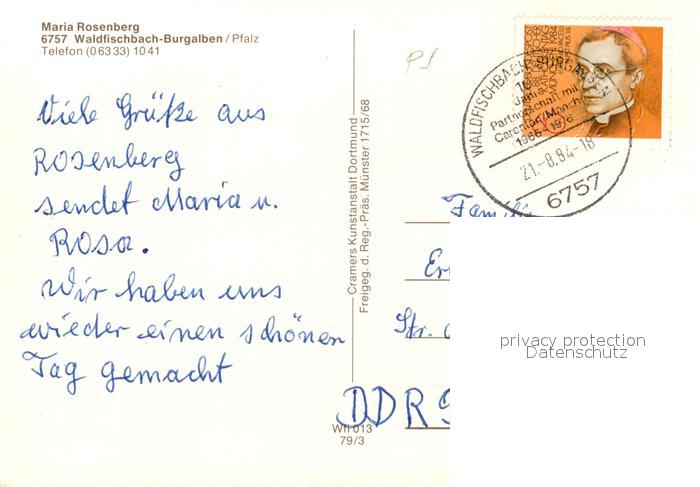 Maria Rosenberg
6757 Waldfischbach-Burgalben / Pfalz
Telefon (0 63 33) 10 41
Viele Grüße aus
Rosenberg
sendet Maria u.
Rosa.
Wir haben uns
wieder einen schönen
Tag gemacht
Cramers Kunstanstalt Dortmund
Freigeg. d. Reg.-Präs. Münster 1715/68
Wfi 013
79/3
WALDFISCHBACH-BURGALBEN
10
Jahre
Partnerschaft mit
1966-1976
21.-8.84-18
6757
Famili
Er
Str.
DDR 9
privacy protection
Datenschutz